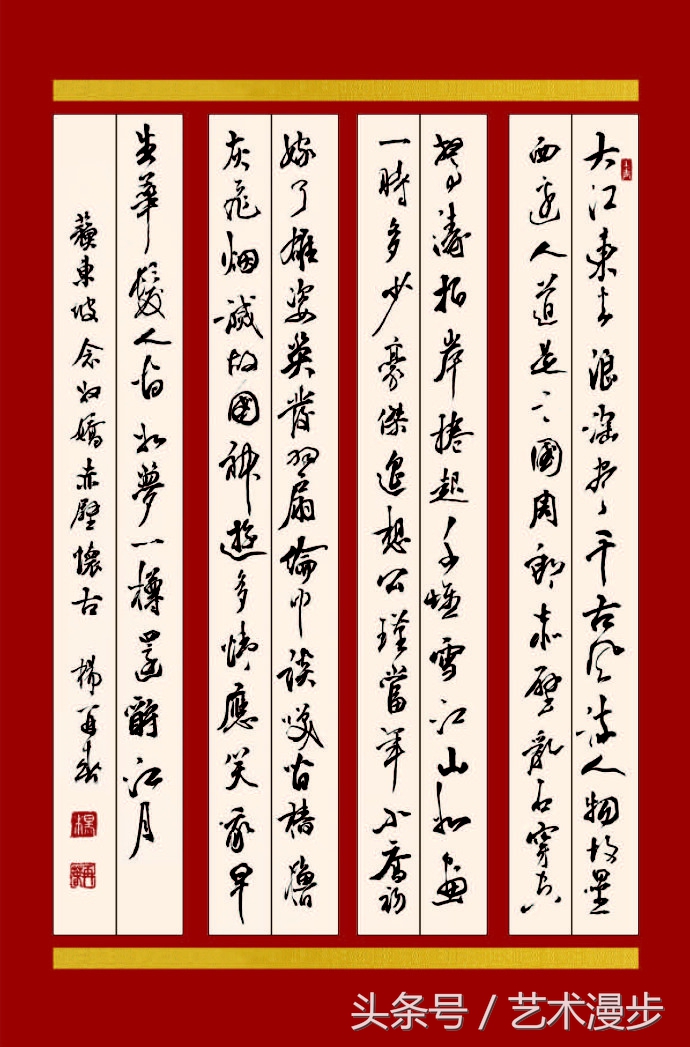 大江東去浪淘盡千古風流人物故壘
西邊人道是三國周郎赤壁亂石穿空
驚濤拍岸捲起千堆雪江山如畫
一時多少豪傑遙想公瑾當年小喬初
嫁了雄姿英發羽扇綸巾談笑間檣櫓
灰飛烟滅故國神遊多情應笑我早
生華髮人間如夢一樽還酹江月
蘇東坡念奴嬌赤壁懷古 楊再春
头条号 / 艺术漫步